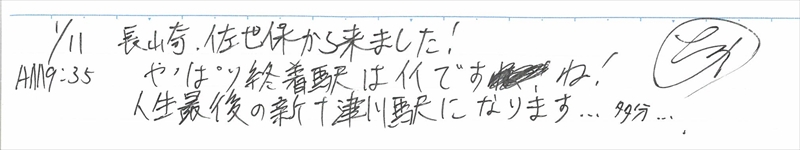 1/11 長崎、佐世保から来ました!
AM9:35 やっぱり終着駅はイイですね!
人生最後の新十津川駅になります… 多分…